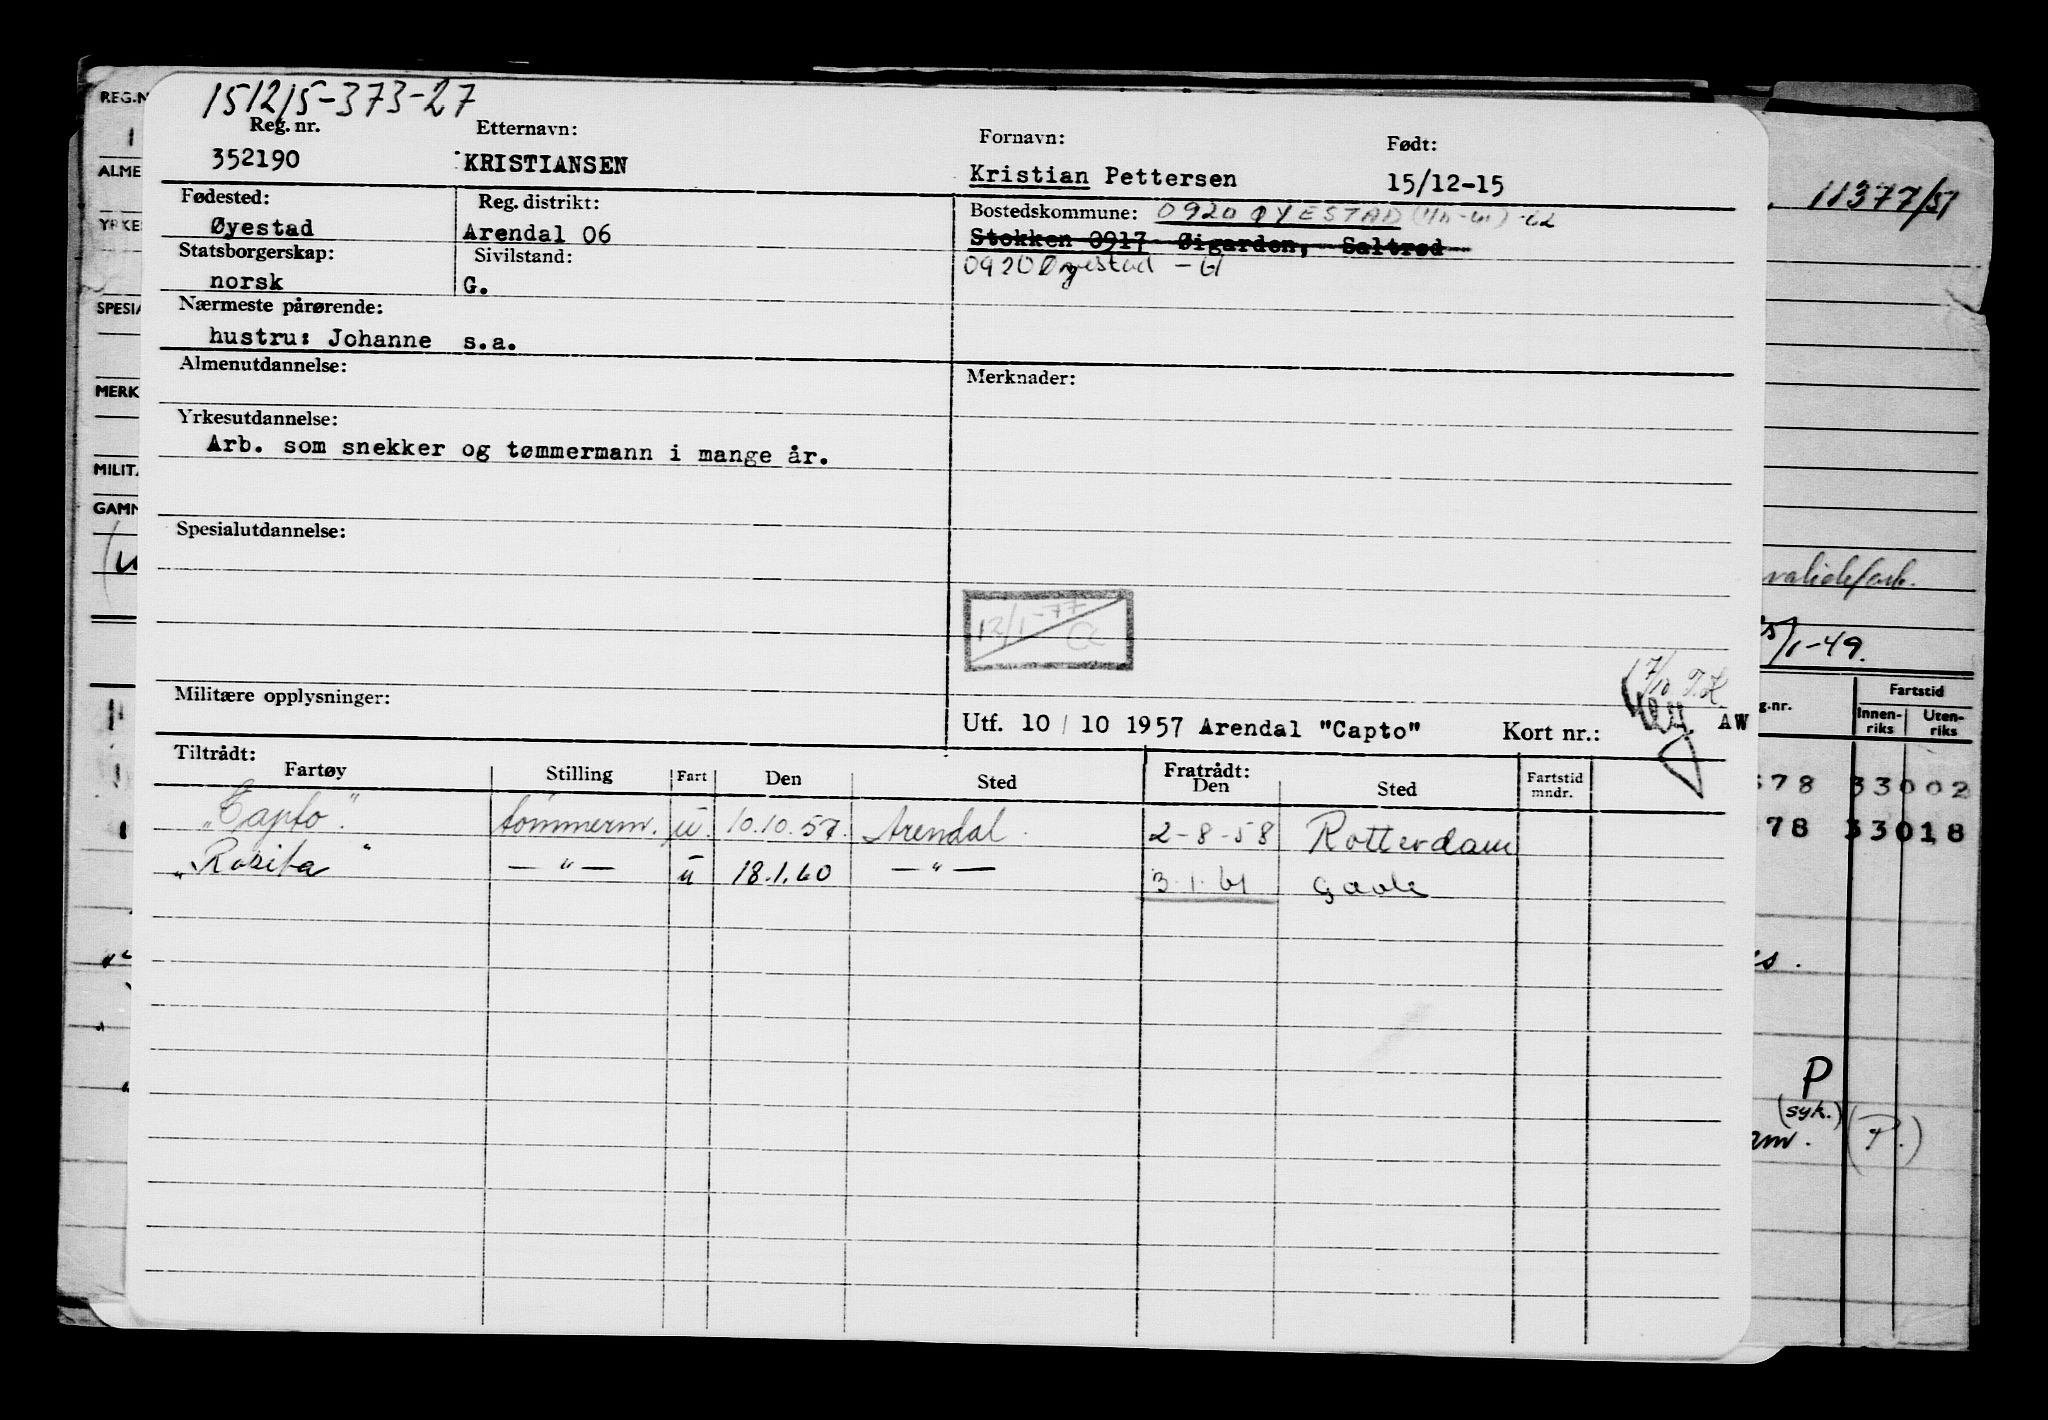 151215-373-27
REG.N
Reg. nr. Etternavn: Fornavn: Født:
352190 KRISTIANSEN Kristian Pettersen 15/12-15
ALME
Fødested: Reg. distrikt: Bostedskommune: 0920 ØYESTAD
11377/51
YRKE
Øyestad Arendal 06 Stokken 0917 Øigarden, Saltrød
Statsborgerskap: Sivilstand: 0920 Øyestad - 61
norsk G.
SPESIA
Nærmeste pårørende:
hustru: Johanne s.a.
Almenutdannelse: Merknader:
MERK
Yrkesutdannelse:
Arb. som snekker og tømmermann i mange år.
MILITÆ
GAMM
Spesialutdannelse:
12/1-77
5/1-49.
17/10 T.K
Militære opplysninger: Utf. 10/10 1957 Arendal "Capto" Kort nr.: AW
g.nr. Fartstid
Innen-riks Uten-riks
Tiltrådt: Fratrådt:
Fartøy Stilling Fart Den Sted Den Sted Fartstid mndr.
"Capto". tömmerm. u. 10.10.57. Arendal. 2-8-58 Rotterdam
"Rosita" — " — u 18.1.60 — " — 3.1.61 Gävle
78 33002
78 33018
s.
P
(syk.)
am. (P.)